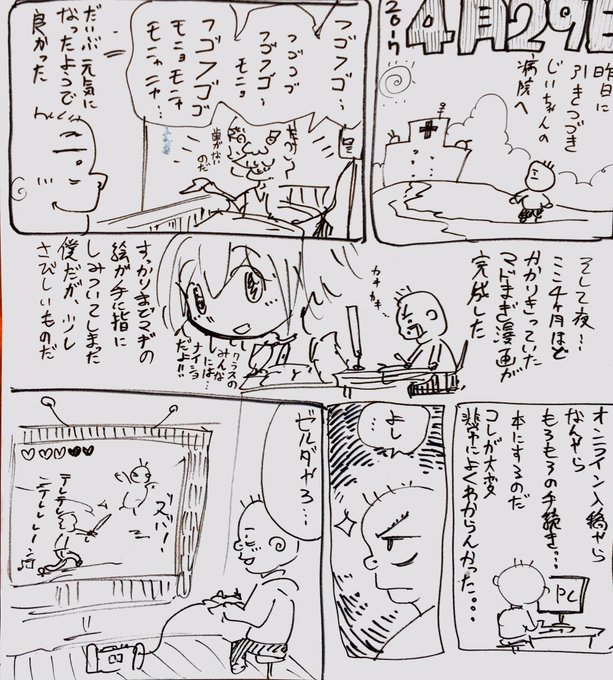 2017
4月29日
昨日に
引きつづき
じいちゃんの
病院へ
フゴフゴ…
フゴフゴ
フゴフゴ…
モニョ
フゴフゴゴ
モニョモニャ
モニャニャ…
歯がない
のだ
だいぶ元気に
なったようで
良かった
そして夜…
ここ4ヶ月ほど
かかりきっていた
マドまぎ漫画が
完成した
カキ
カキ…
クラスの
みんな
には…
ナイショ
だよ!!
すっかりまどマギの
絵が手に指に
しみついてしまった
僕だが、少し
さびしいものだ
オンライン入稿やら
なんやら
もろもろの手続き…
本にするのだ
コレが大変
非常によくわからんかった…
PC
…よし
ゼルダやろ…
ズバー!
テレテレ
ニテレレレーン♪